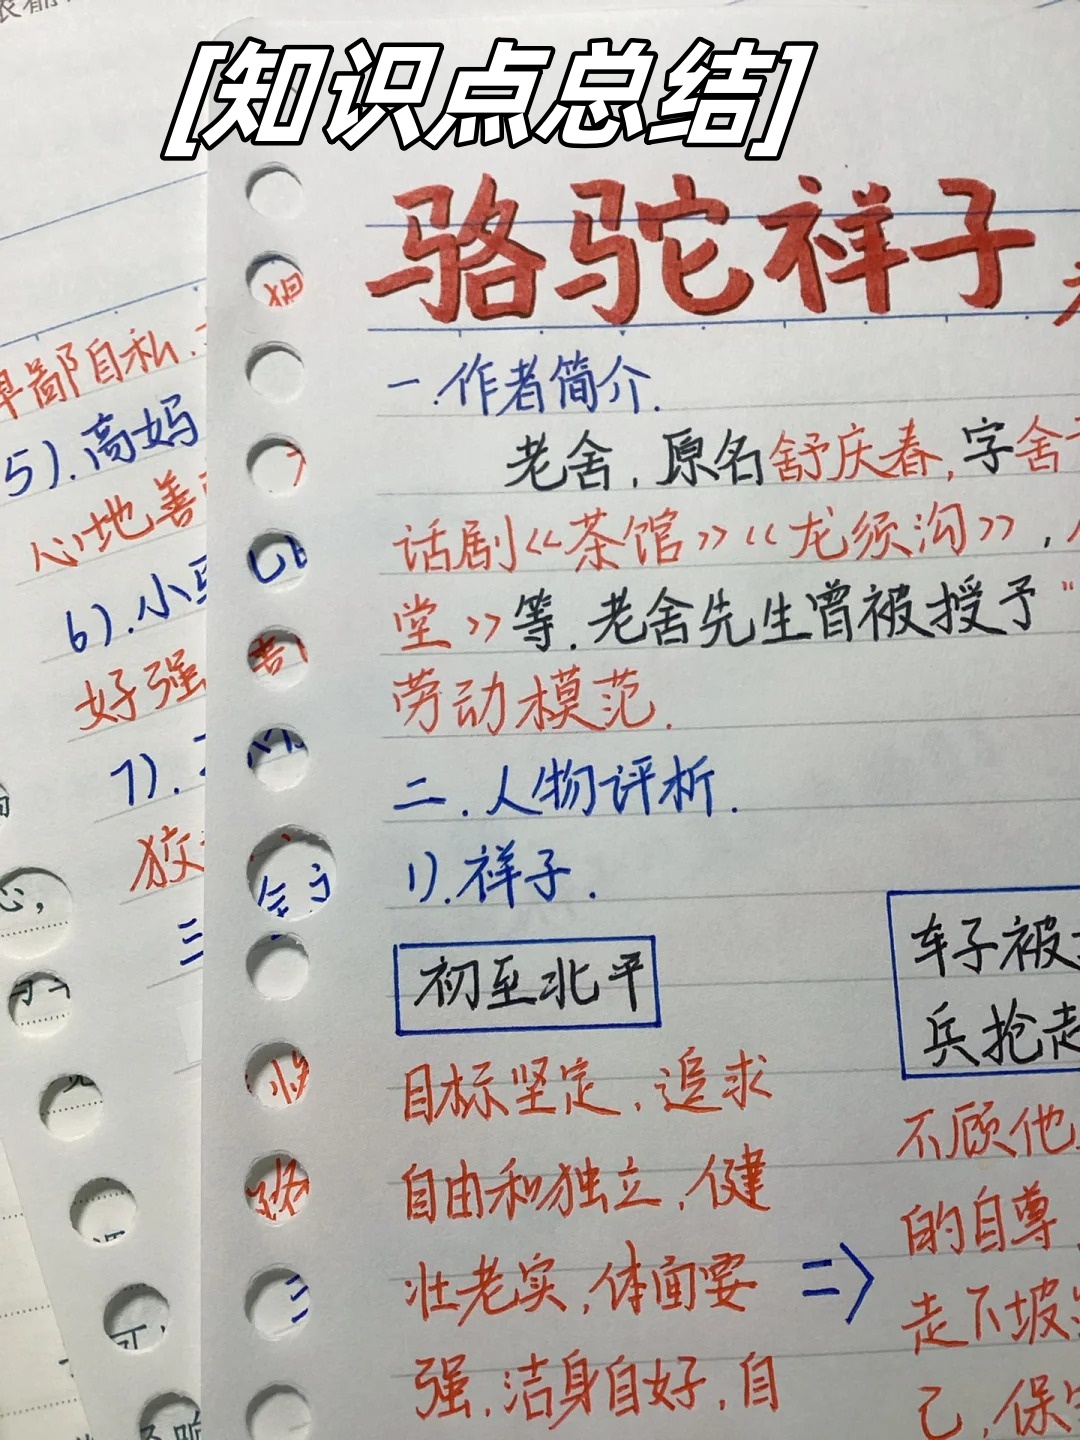 [知识点总结]
骆驼祥子
一.作者简介.
老舍,原名舒庆春,字舍
话剧《茶馆》《龙须沟》,
堂》等.老舍先生曾被授予"
劳动模范.
二.人物评析.
1).祥子.
初至北平
目标坚定,追求
自由和独立,健
壮老实,体面要
强,洁身自好,自
=>
车子被
兵抢走
不顾他
的自尊
走下坡
己,保
卑鄙自私.
5).高妈
心地善
6).小
好强
7).
狡
三